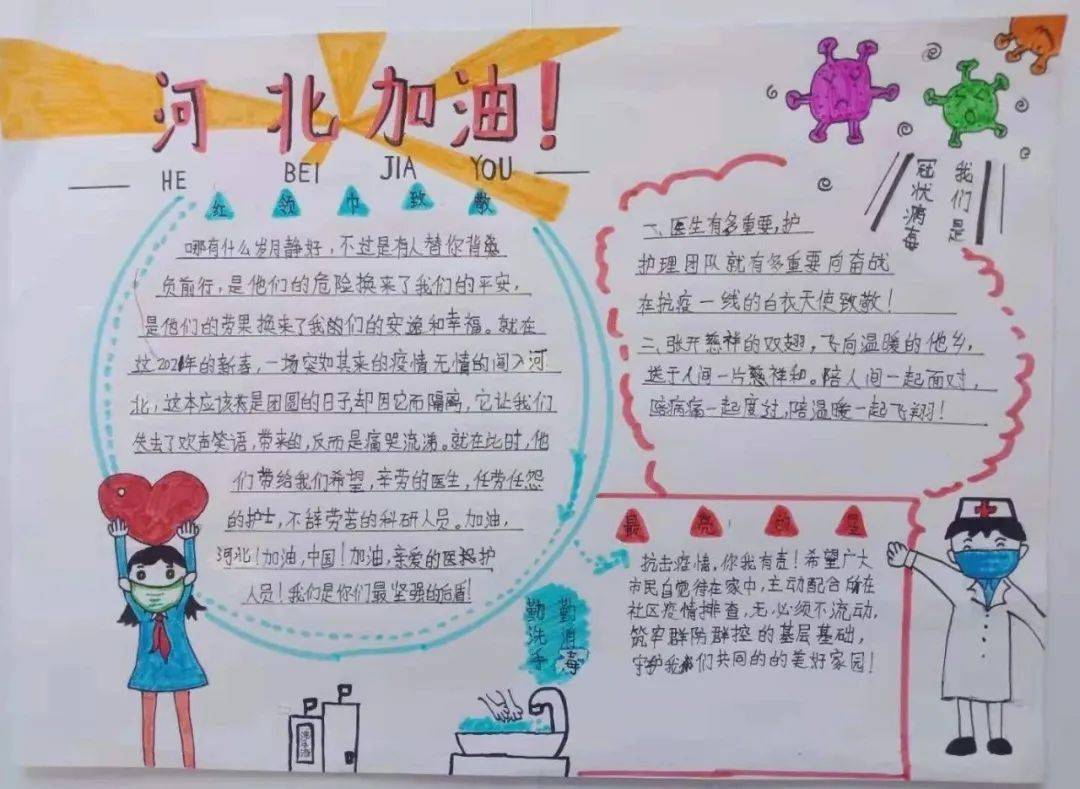 河北加油!
HE BEI JIA YOU
红领巾致敬
哪有什么岁月静好，不过是有人替你背
负前行，是他们的危险换来了我们的平安，
是他们的劳累换来了我们的安逸和幸福。就在
这2021年的新春，一场突如其来的疫情无情的闯入河
北，这本应该是团圆的日子却因它而隔离，它让我们
失去了欢声笑语，带来的，反而是痛哭流涕。就在比时，他
们带给我们希望，辛劳的医生，任劳任怨
的护士，不辞劳苦的科研人员。加油，
河北！加油，中国！加油，亲爱的医护
人员！我们是你们最坚强的后盾！
我们是
冠状病毒
一、医生有多重要，护
护理团队就有多重要向奋战
在抗疫一线的白衣天使致敬！
二、张开慈祥的双翅，飞向温暖的他乡，
送于人间一片慈祥和。陪人间一起面对，
陪病痛一起度过，陪温暖一起飞翔！
最亮的星
抗击疫情，你我有责！希望广大
市民自觉待在家中，主动配合所在
社区疫情排查，无必须不流动，
筑牢群防群控的基层基础，
守护我们共同的的美好家园！
勤消毒
勤洗手
洗手液